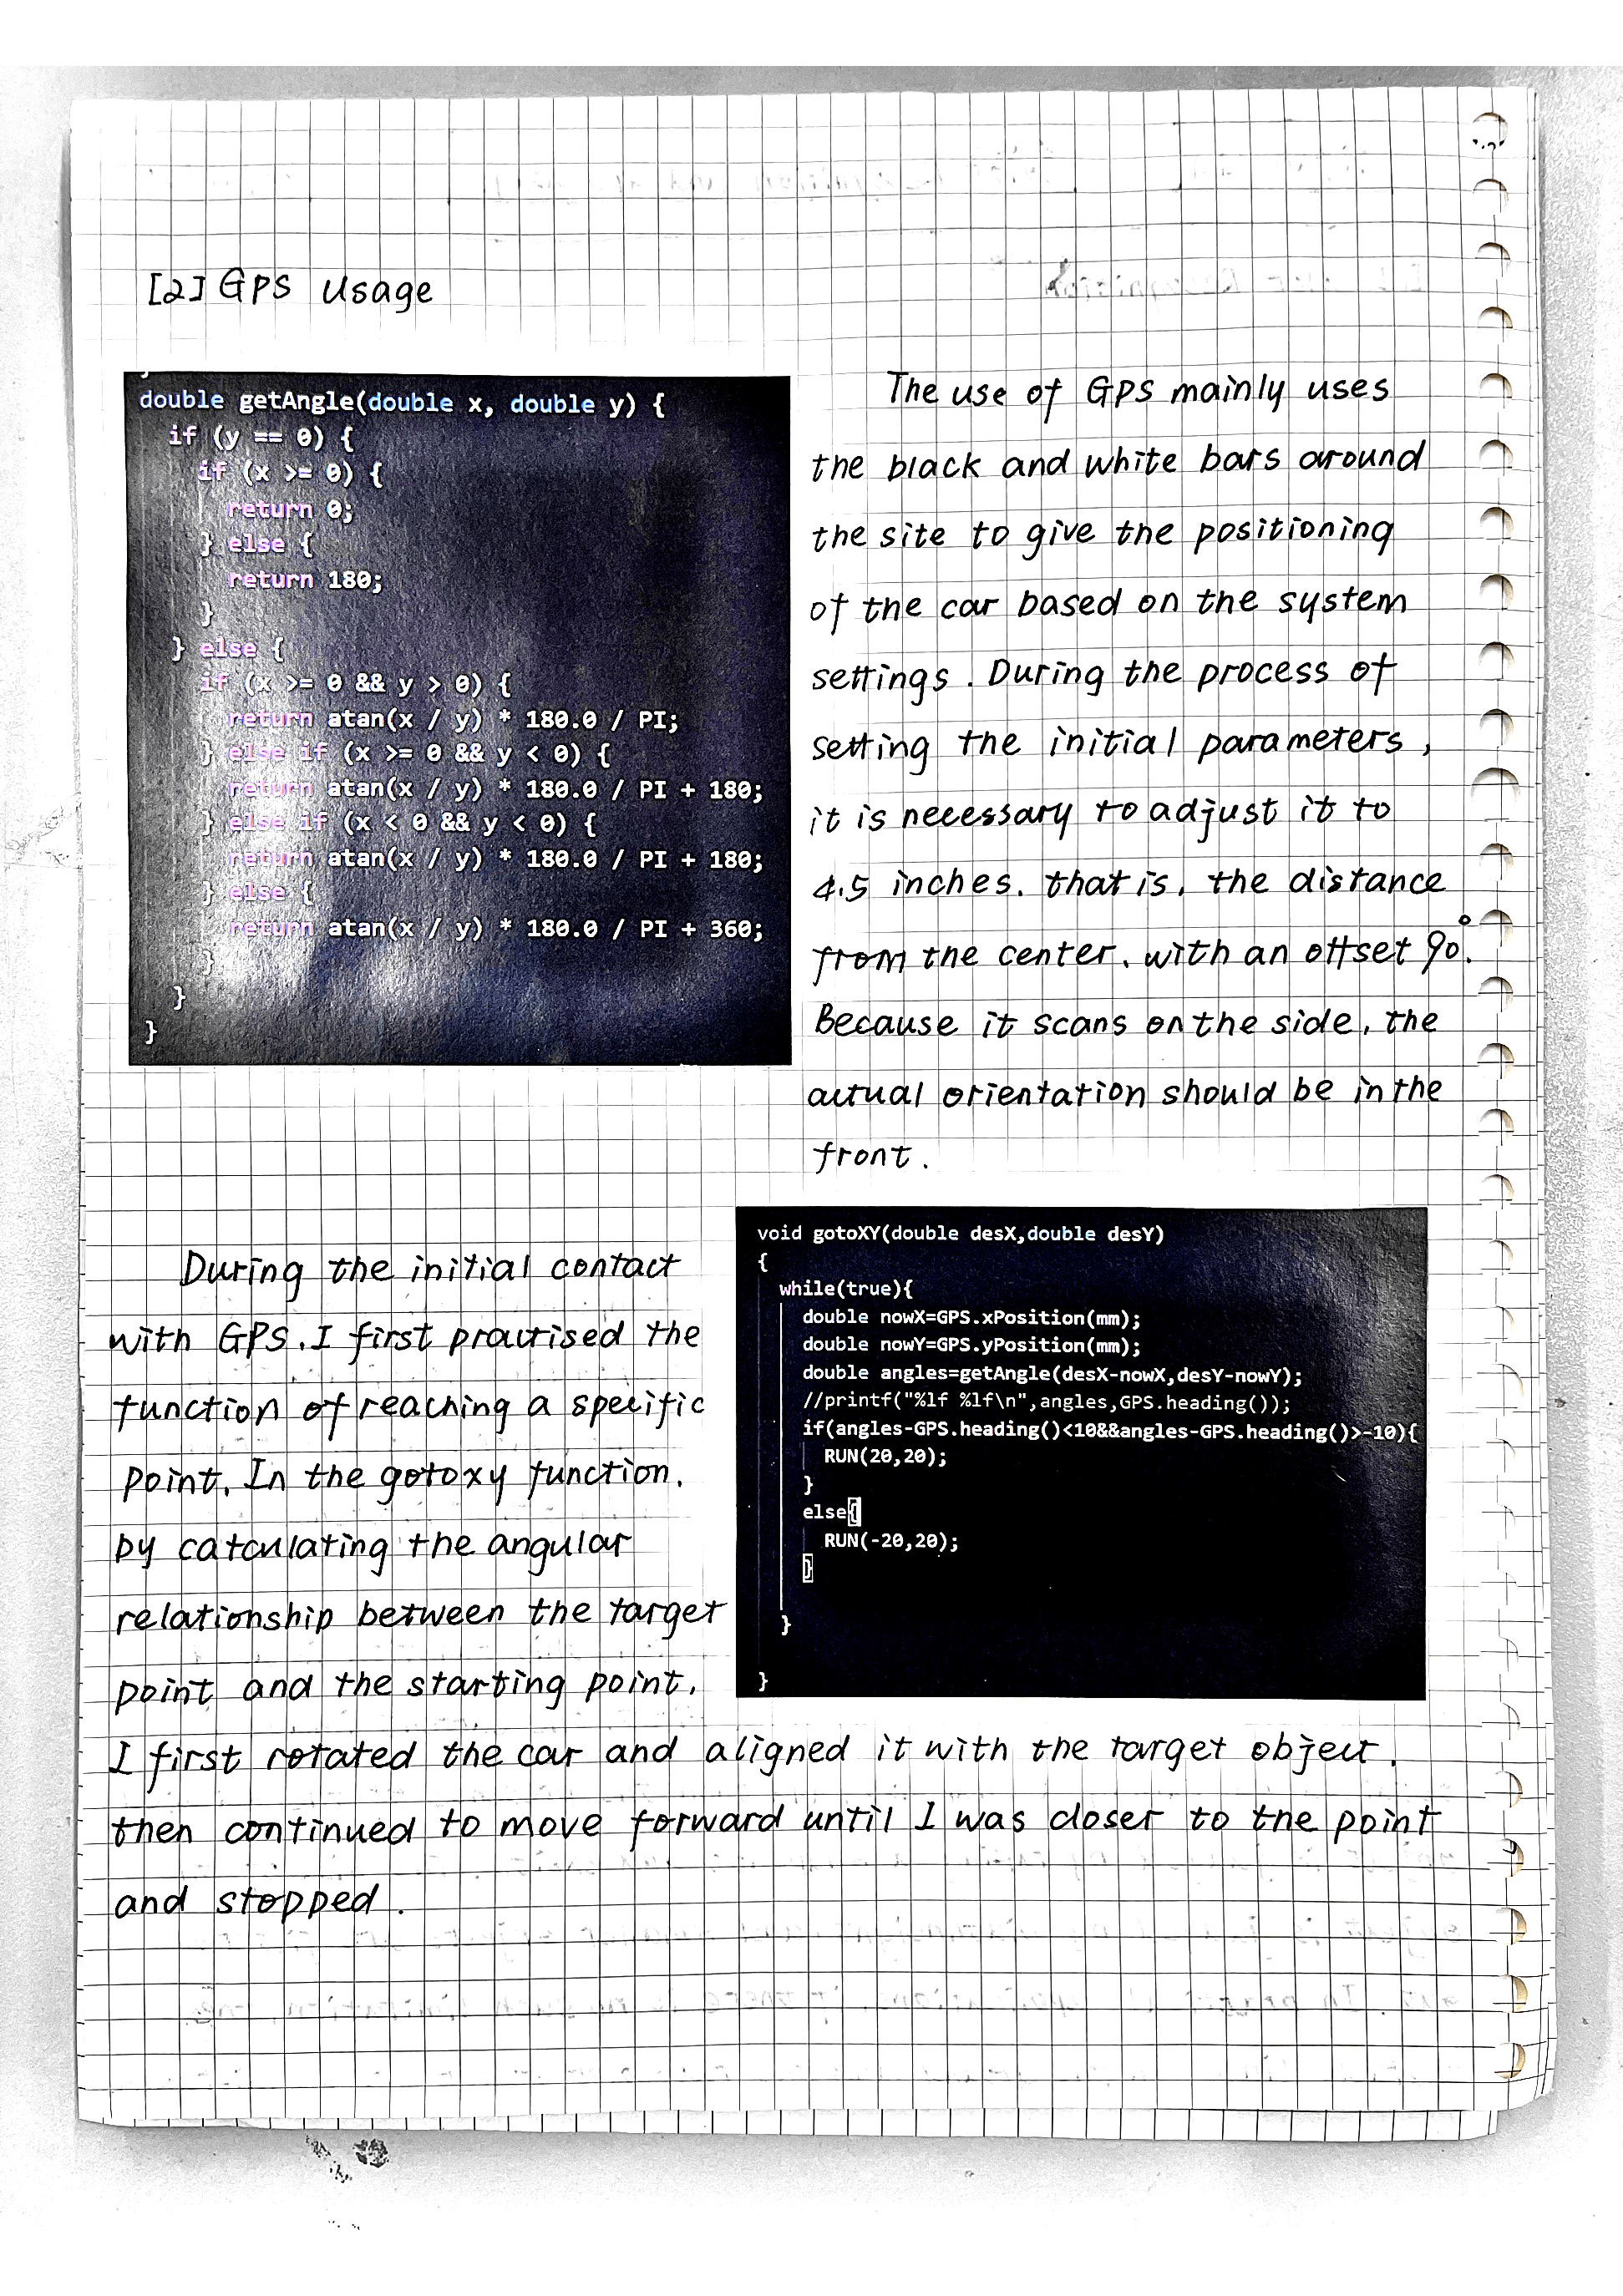 [2] GPS usage
double getAngle(double x, double y) {
if (y == 0) {
if (x >= 0) {
return 0;
} else {
return 180;
}
} else {
if (x >= 0 && y > 0) {
return atan(x / y) * 180.0 / PI;
} else if (x >= 0 && y < 0) {
return atan(x / y) * 180.0 / PI + 180;
} else if (x < 0 && y < 0) {
return atan(x / y) * 180.0 / PI + 180;
} else {
return atan(x / y) * 180.0 / PI + 360;
}
}
}
The use of GPS mainly uses
the black and white bars around
the site to give the positioning
of the car based on the system
settings. During the process of
setting the initial parameters,
it is necessary to adjust it to
4.5 inches. that is, the distance
from the center, with an offset 90°.
Because it scans on the side, the
actual orientation should be in the
front.
During the initial contact
with GPS, I first practised the
function of reaching a specific
point. In the gotoxy function,
by calculating the angular
relationship between the target
point and the starting point,
I first rotated the car and aligned it with the target object,
then continued to move forward until I was closer to the point
and stopped.
void gotoXY(double desX,double desY)
{
while(true){
double nowX=GPS.xPosition(mm);
double nowY=GPS.yPosition(mm);
double angles=getAngle(desX-nowX,desY-nowY);
//printf("%lf %lf\n",angles,GPS.heading());
if(angles-GPS.heading()<10&&angles-GPS.heading()>-10){
RUN(20,20);
}
else{
RUN(-20,20);
}
}
}